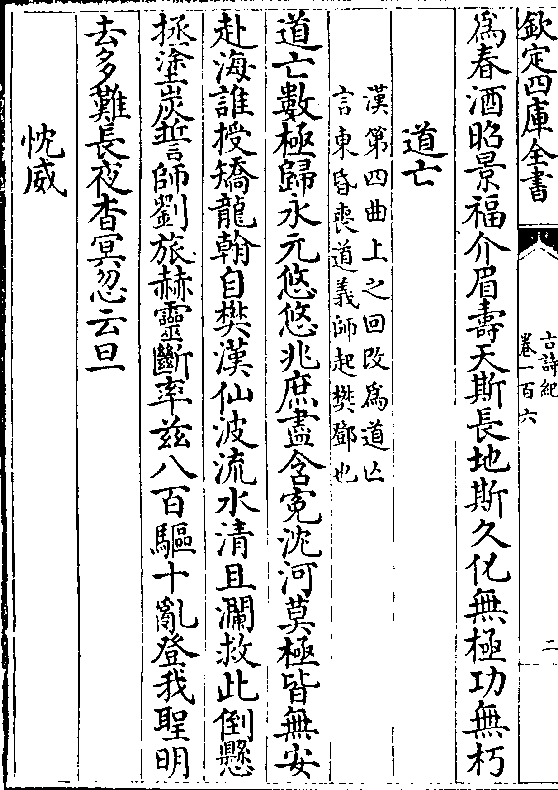 欽定四庫全書
古詩紀
卷一百六
二
為春酒昭景福介眉壽天斯長地斯久化無極功無朽
道亡
漢第四曲上之回改為道亡
言東昏喪道義師起樊鄧也
道亡數極歸永元悠悠兆庶盡含寃沈河莫極皆無安
赴海誰授矯龍翰自樊漢仙波流水清且瀾救此倒懸
拯塗炭誓師劉旅赫靈斷率兹八百驅十亂登我聖明
去多難長夜杳冥忽云旦
忱威